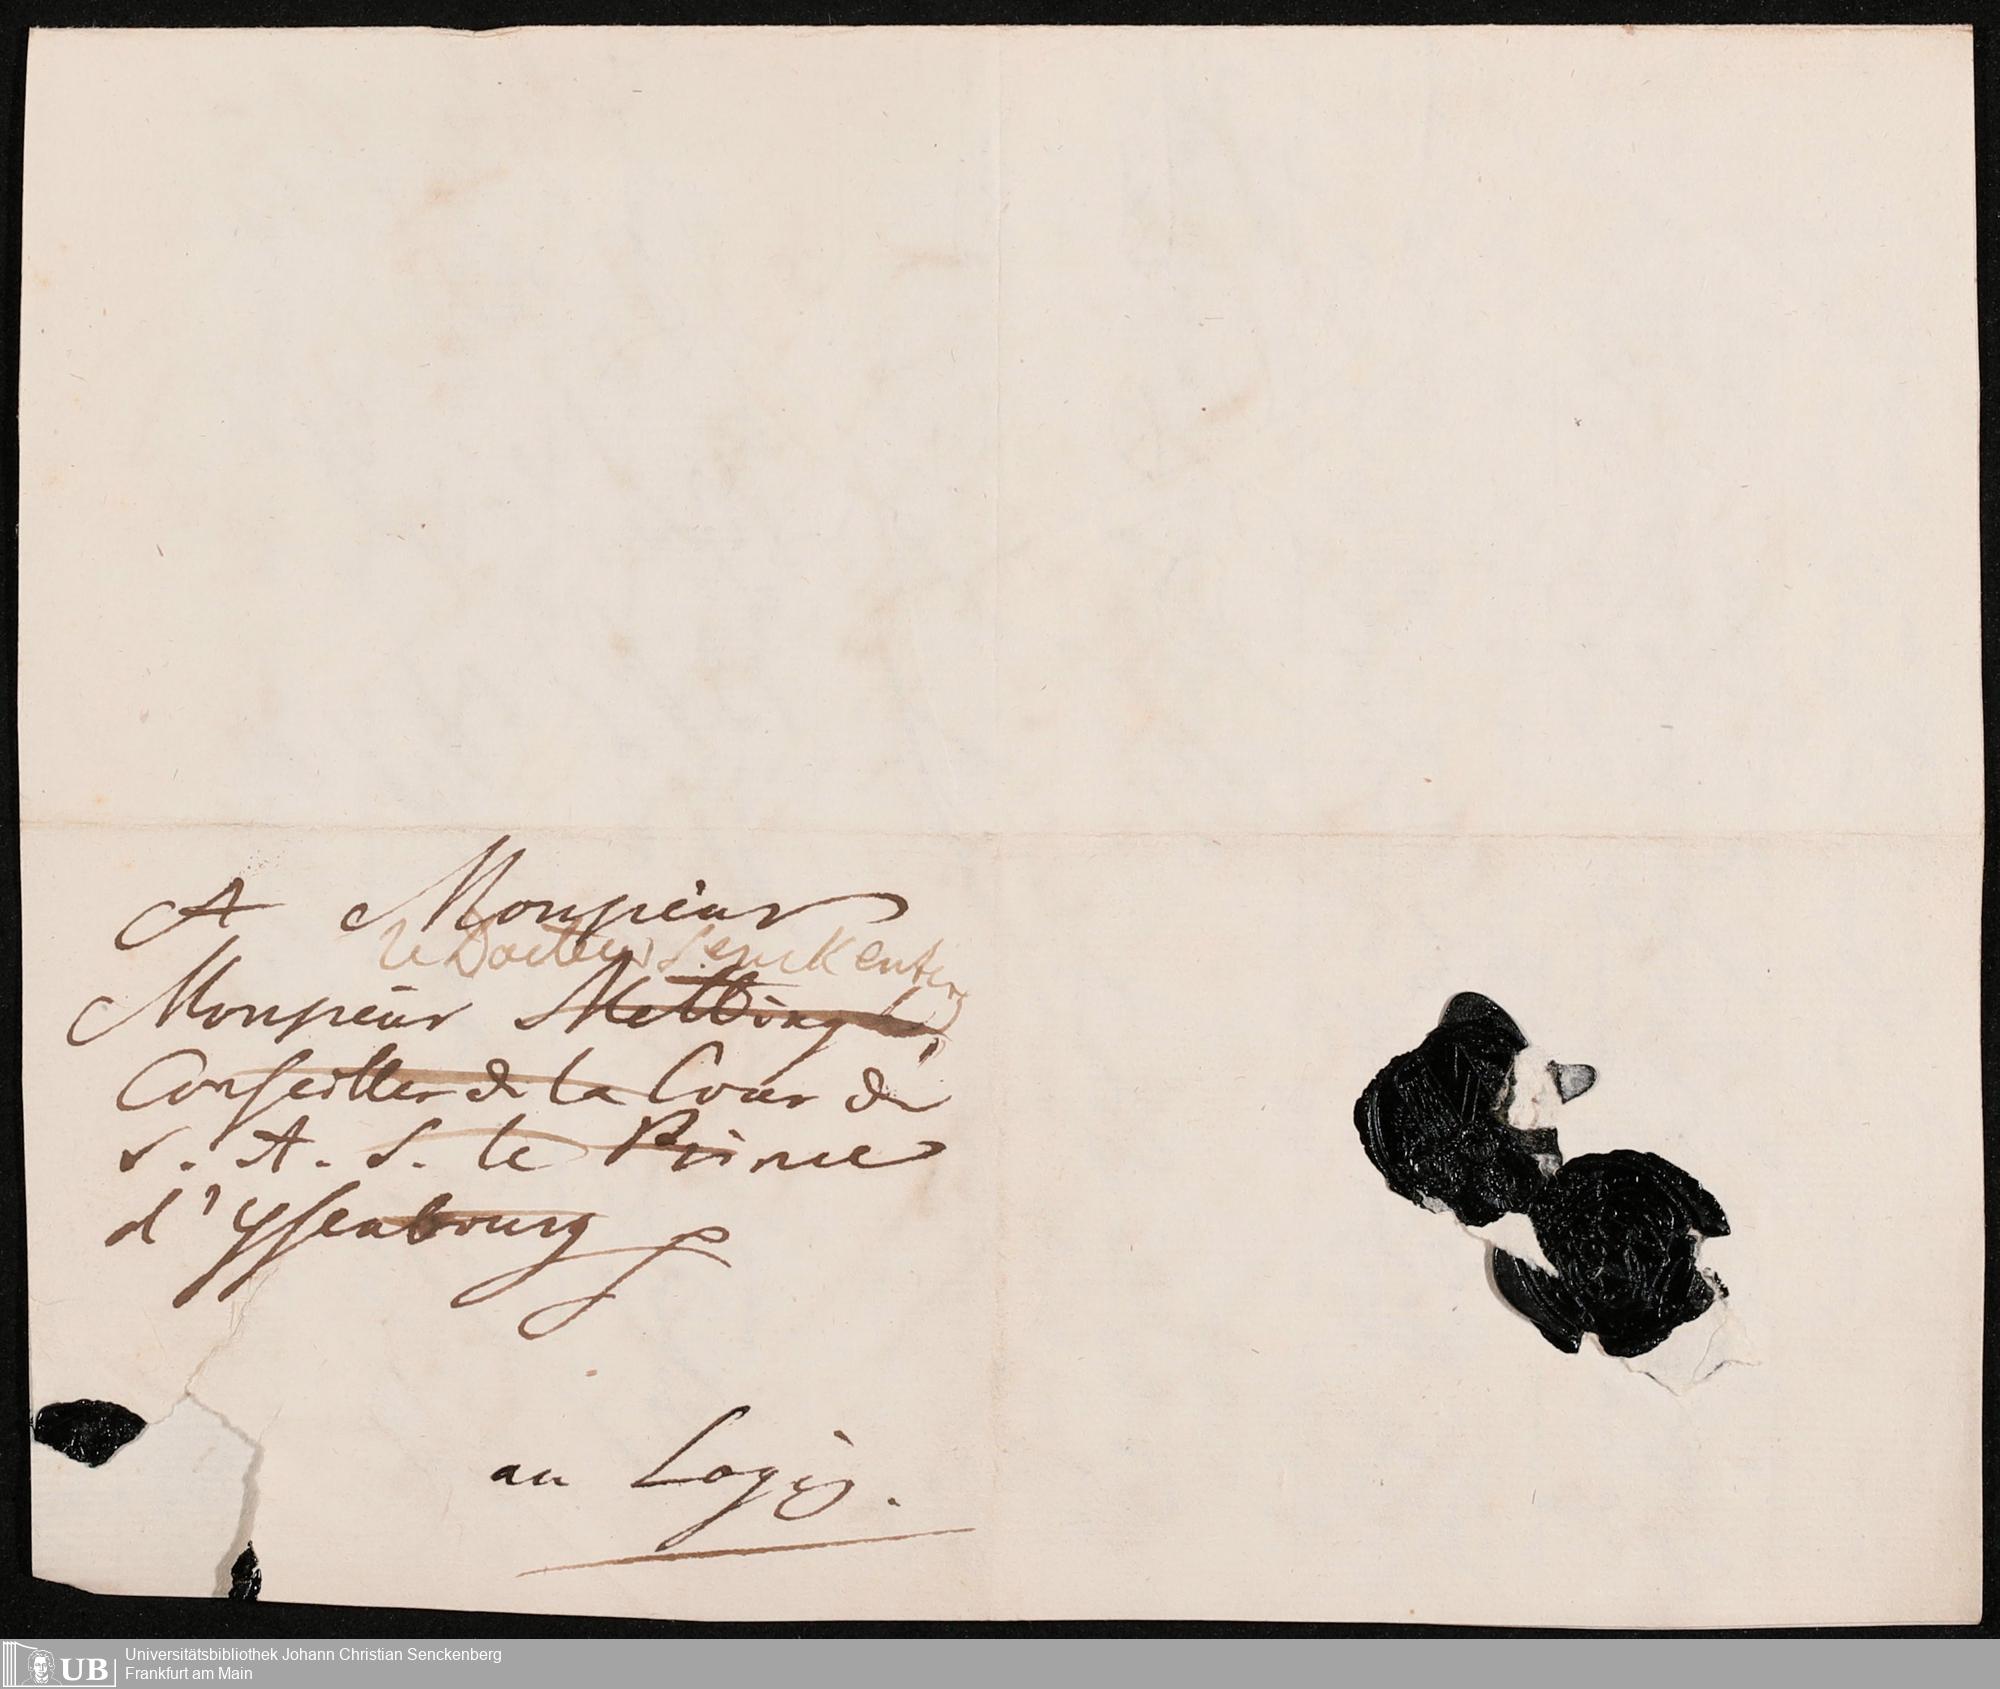 A Monsieur
le Docteur Senckenberg
Monsieur Mettingh,
Conseiller de la Cour de
S. A. S. le Prince
d'Yssenbourg
au Logis.
Universitätsbibliothek Johann Christian Senckenberg
Frankfurt am Main
UB